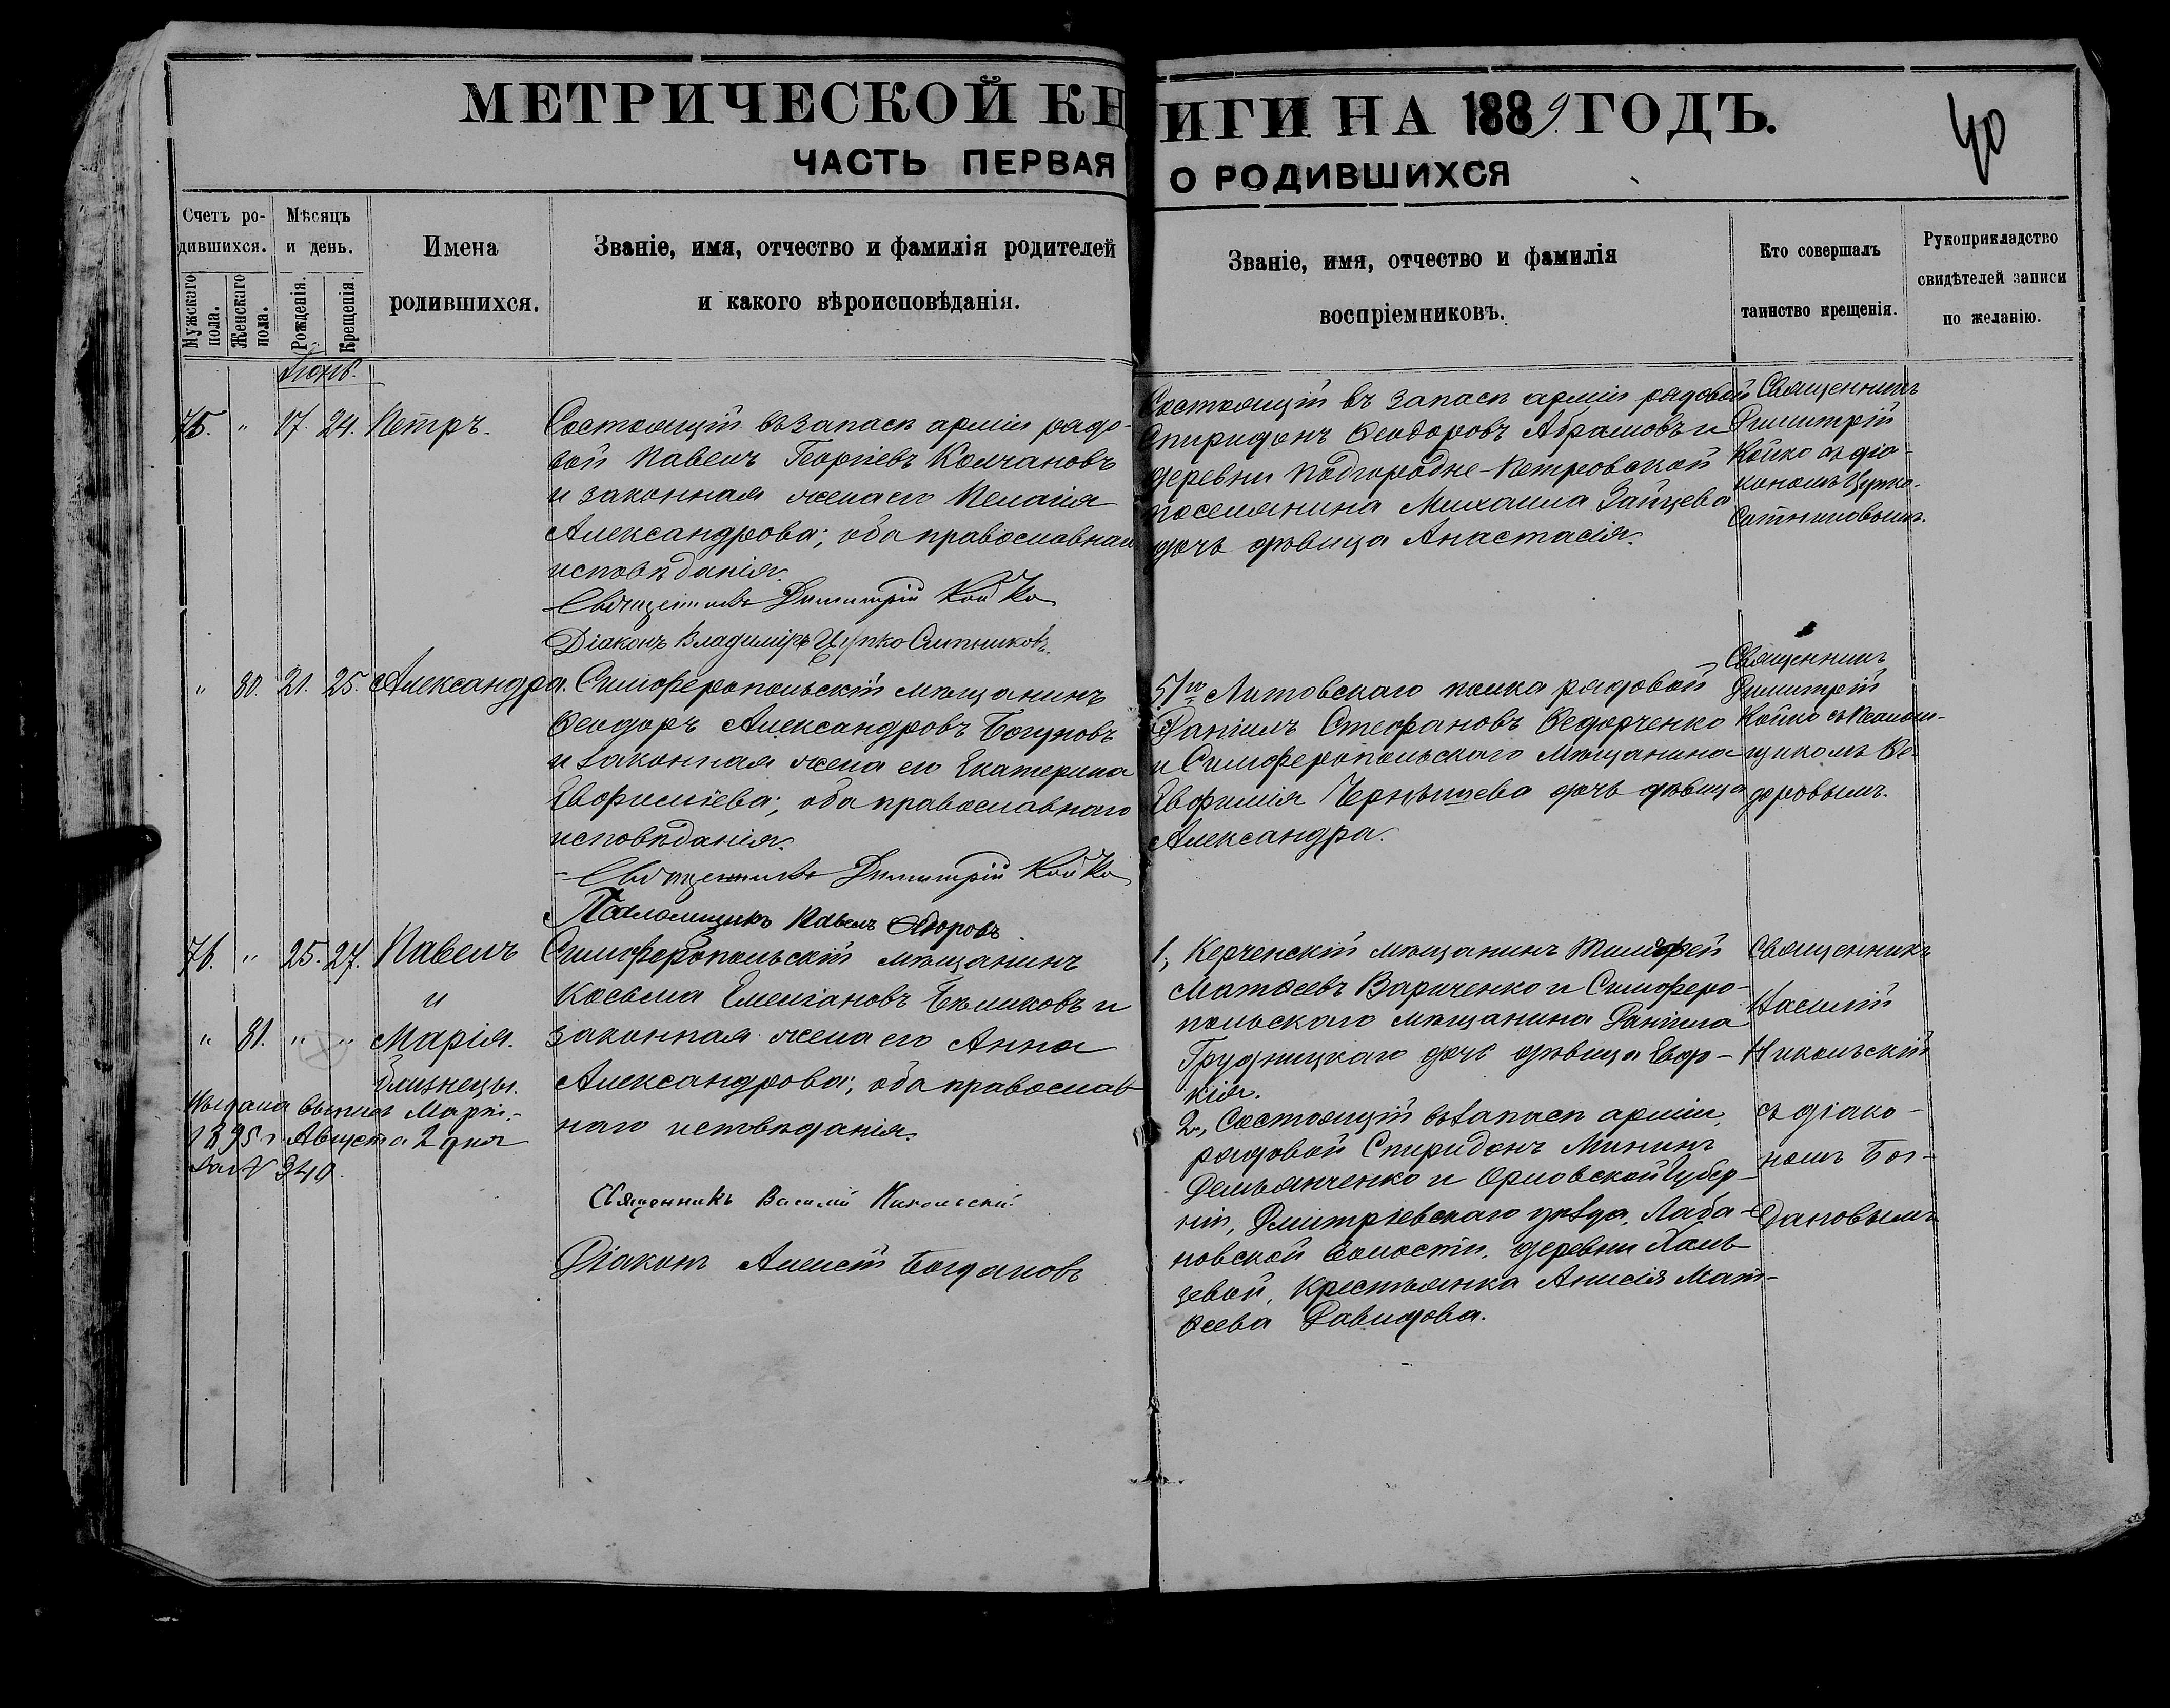 МЕТРИЧЕСКОЙ КНИГИ НА 1889 ГОДЪ.
40
ЧАСТЬ ПЕРВАЯ О РОДИВШИХСЯ
Счетъ ро-
дившихся.
Мужскаго пола.
Женскаго пола.
Мѣсяцъ
и день.
Рожденія.
Крещенія.
Имена
родившихся.
Званіе, имя, отчество и фамилія родителей
и какого вѣроисповѣданія.
Званіе, имя, отчество и фамилія
воспріемниковъ.
Кто совершалъ
таинство крещенія.
Рукоприкладство
свидѣтелей записи
по желанію.
Іюнь.
75. " 17. 24. Петръ.
Состоящій въ запасѣ арміи рядо-
вой Павелъ Георгіевъ Колчановъ
и законная жена его Пелагія
Александрова; оба православнаго
исповѣданія.
Священникъ Димитрій Койко
Діаконъ Владиміръ Цурпко Ситниковъ.
Состоящій въ запасѣ арміи рядовой
Спиридонъ Ѳеодоровъ Абрамовъ и
деревни Подгородне-Петровской
поселянина Михаила Зайцева
дочь дѣвица Анастасія.
Священникъ
Димитрій
Койко съ діа-
кономъ
Ситниковымъ.
" 80. 21. 25. Александра.
Симферопольскій мѣщанинъ
Ѳеодоръ Александровъ Богуновъ
и законная жена его Екатерина
Евфиміева; оба православнаго
исповѣданія.
Священникъ Димитрій Койко
Псаломщикъ Павелъ Ѳедоровъ
51го Литовскаго полка рядовой
Даніилъ Стефановъ Ѳедорченко
и Симферопольскаго мѣщанина
Евфимія Чернышева дочь дѣвица
Александра.
Священникъ
Димитрій
Койко съ псалом-
щикомъ Ѳе-
доровымъ.
76. " 25. 27. Павелъ
и
" 81. " " Марія.
близнецы.
Выдана выпись Маріи
1895 г. Августа 2 дня
за № 340.
Симферопольскій мѣщанинъ
Косьма Емеліановъ Бѣликовъ и
законная жена его Анна
Александрова; оба православ-
наго исповѣданія.
Священникъ Василій Никольскій
Діаконъ Алексій Богдановъ
1, Керченскій мѣщанинъ Тимофей
Матѳеевъ Вариченко и Симферо-
польскаго мѣщанина Даніила
Грудницкаго дочь дѣвица Евдо-
кія.
2, Состоящій въ запасѣ арміи,
рядовой Спиридонъ Мининъ
Демьянченко и Орловской Губер-
ніи, Дмитріевскаго уѣзда, Лаба-
новской волости, деревни
зевой, крестьянка Анисія Мат-
ѳеева Давидова.
Священникъ
Василій
Никольскій
съ діако-
номъ Бог-
дановымъ